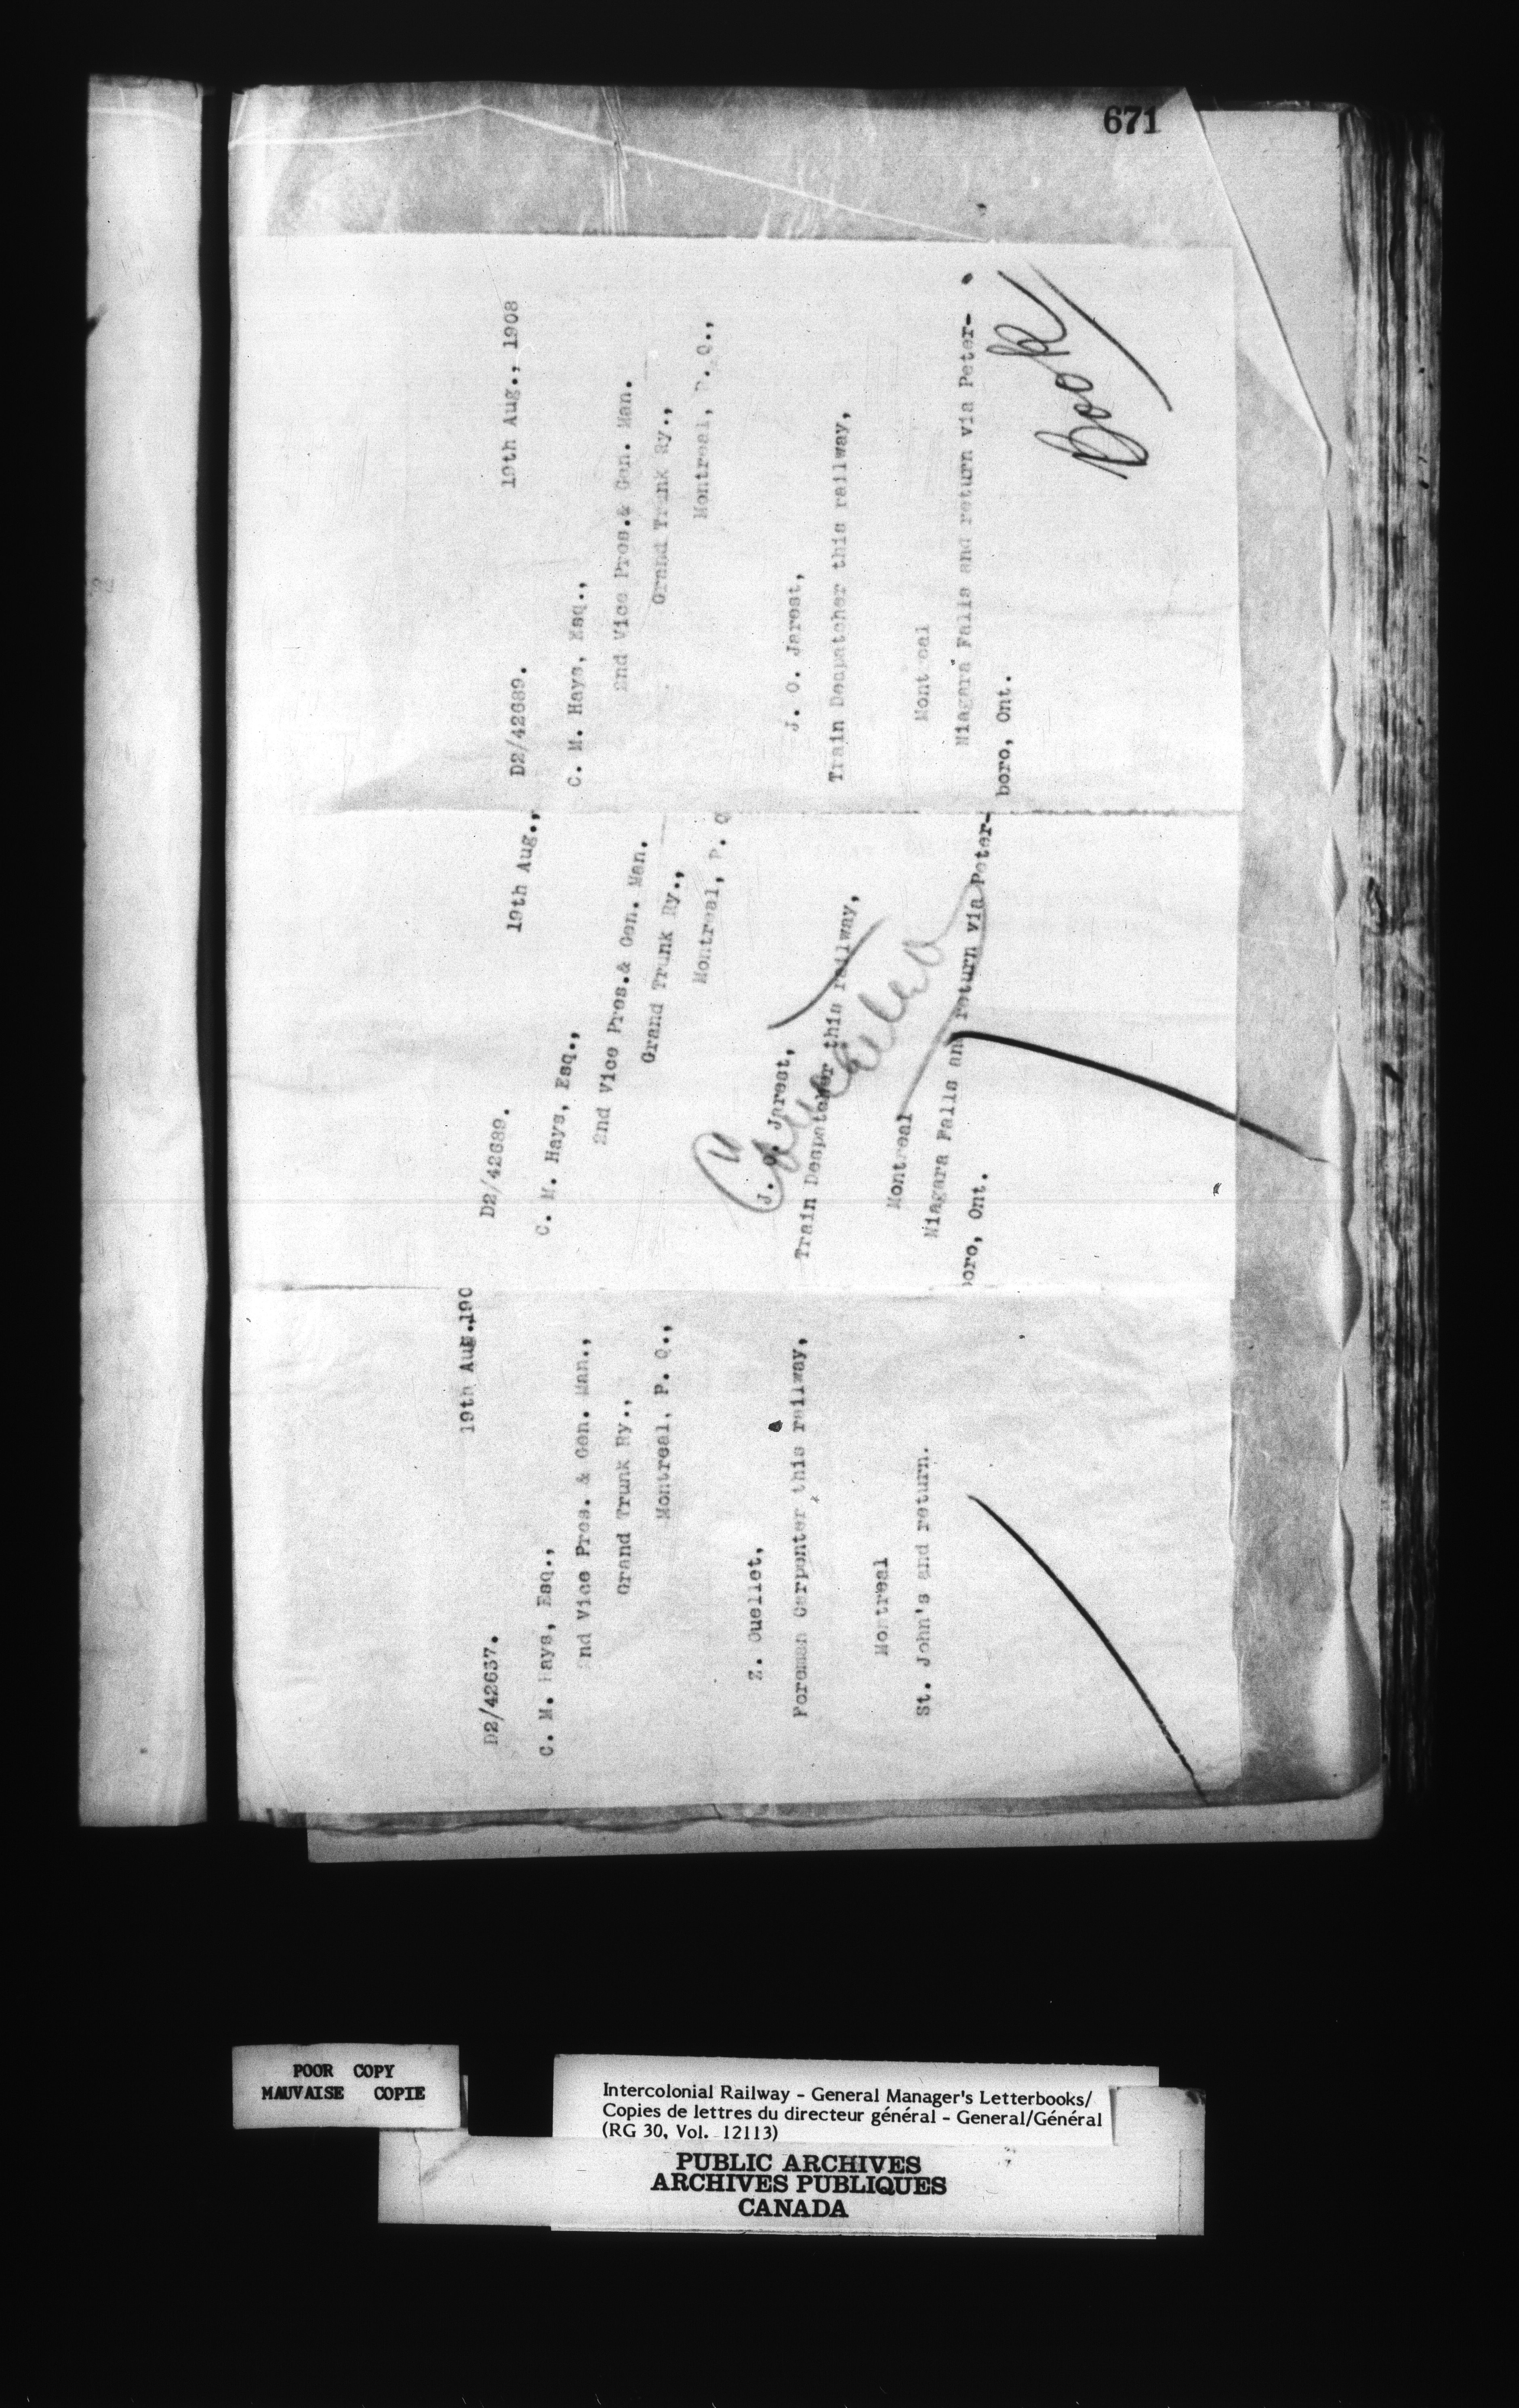 671
19th Aug.190
D2/42637.
C. M. Hays, Esq.,
2nd Vice Pres. & Gen. Man.,
Grand Trunk Ry.,
Montreal, P. Q.,
Z. Ouellet,
Foreman Carpenter this railway,
Montreal
St. John's and return.
19th Aug.,
D2/42689.
C. M. Hays, Esq.,
2nd Vice Pres.& Gen. Man.
Grand Trunk Ry.,
Montreal, P. Q
Cancelled
J. O. Jarest,
Train Despatcher this railway,
Montreal
Niagara Falls and return via Peter-
boro, Ont.
19th Aug., 1908
D2/42689.
C. M. Hays, Esq.,
2nd Vice Pres.& Gen. Man.
Grand Trunk Ry.,
Montreal, P. Q.,
J. O. Jarest,
Train Despatcher this railway,
Montreal
Niagara Falls and return via Peter-
boro, Ont.
Book
POOR COPY
MAUVAISE COPIE
Intercolonial Railway - General Manager's Letterbooks/
Copies de lettres du directeur général - General/Général
(RG 30, Vol. 12113)
PUBLIC ARCHIVES
ARCHIVES PUBLIQUES
CANADA